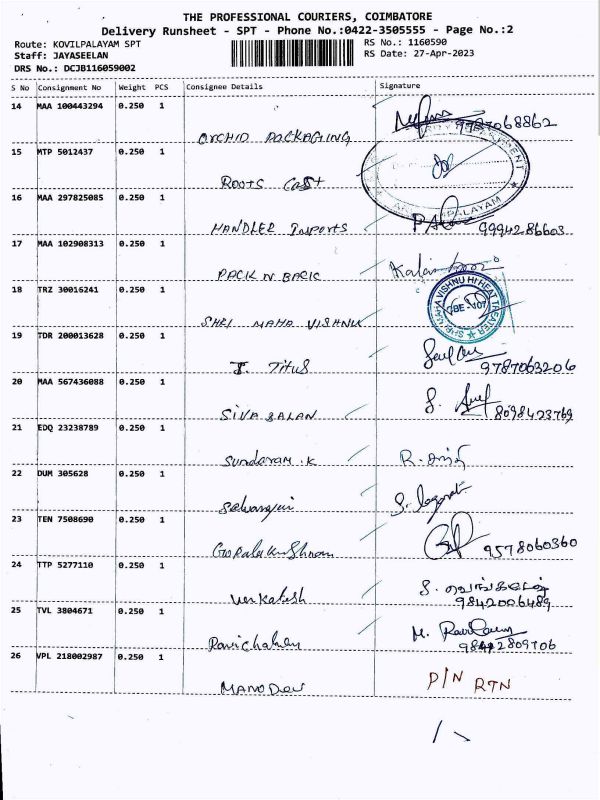 THE PROFESSIONAL COURIERS, COIMBATORE
Delivery Runsheet - SPT - Phone No.:0422-3505555 - Page No.:2
Route: KOVILPALAYAM SPT
RS No.: 1160590
Staff: JAYASEELAN
RS Date: 27-Apr-2023
DRS No.: DCJB116059002
S No Consignment No Weight PCS Consignee Details Signature
14 MAA 100443294 0.250 1
ORCHID PACKAGING 9787068862
15 MTP 5012437 0.250 1
ROOTS CAST
16 MAA 297825085 0.250 1
HANDLER Imports 9994286603
17 MAA 102908313 0.250 1
PACK N BACK
18 TRZ 30016241 0.250 1
SHRI MAHA VISHNU
SHRI MAHA VISHNU HI HEAT TREATER
19 TDR 200013628 0.250 1
J. Titus 9787063206
20 MAA 567436088 0.250 1
SIVA BALAN 8098423769
21 EDQ 23238789 0.250 1
Sundaram.K R.
22 DUM 305628 0.250 1
Selvarani
23 TEN 7508690 0.250 1
Gopalakrishnan 9578060360
24 TTP 5277110 0.250 1
Venkatesh S. வெங்கடேஷ்
9842006489
25 TVL 3804671 0.250 1
M.
9842809706
26 VPL 218002987 0.250 1
MANODEV P/N RTN